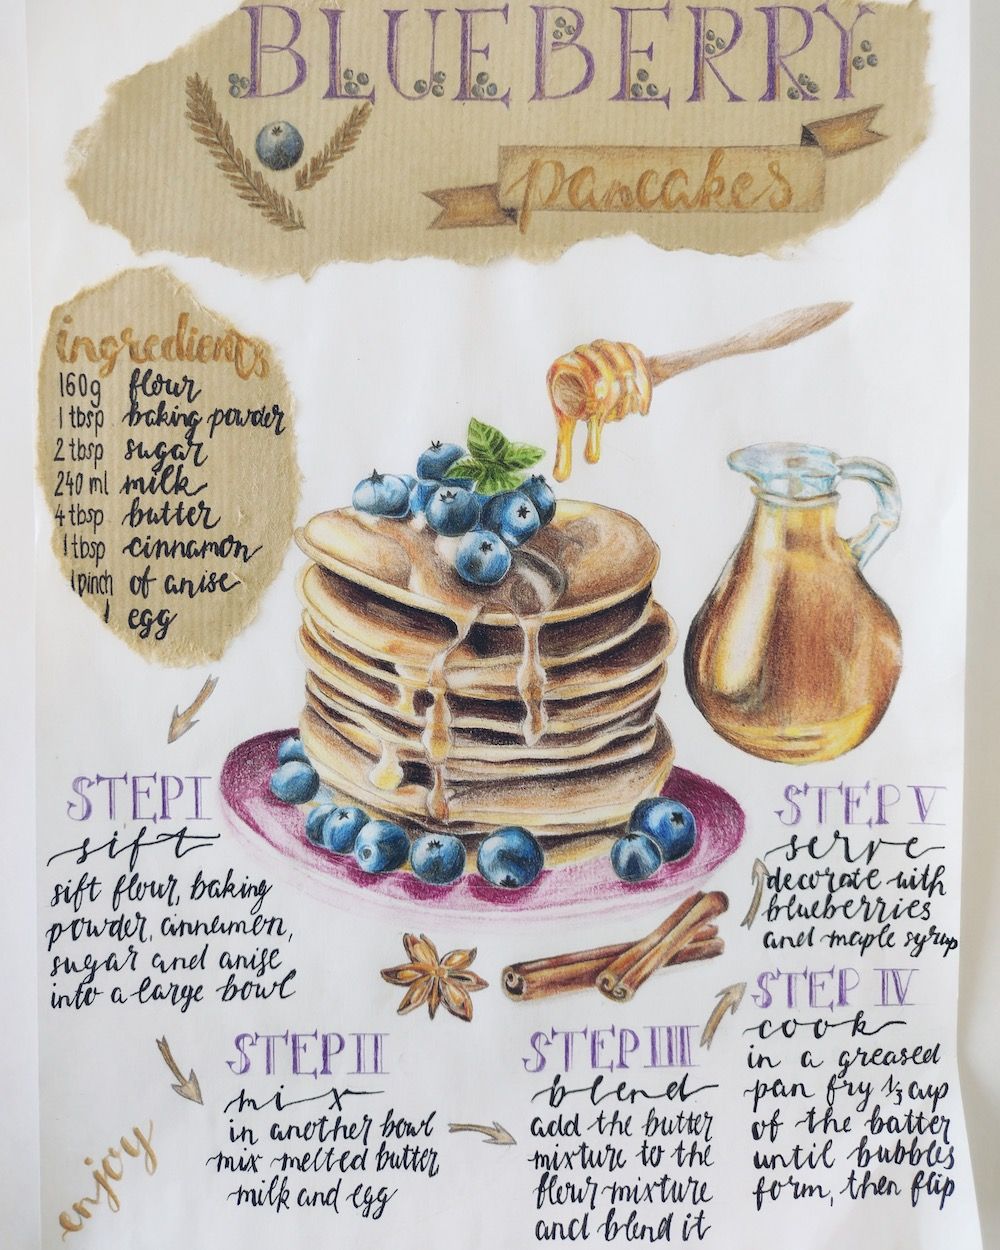 BLUEBERRY
pancakes
ingredients
160g flour
1 tbsp baking powder
2 tbsp sugar
240 ml milk
4 tbsp butter
1 tbsp cinnamon
1 pinch of anise
1 egg
STEP I
sift
sift flour, baking
powder, cinnamon,
sugar and anise
into a large bowl
STEP II
mix
in another bowl
mix melted butter
milk and egg
STEP III
blend
add the butter
mixture to the
flour mixture
and blend it
STEP IV
cook
in a greased
pan fry 1/3 cup
of the batter
until bubbles
form, then flip
STEP V
serve
decorate with
blueberries
and maple syrup
enjoy